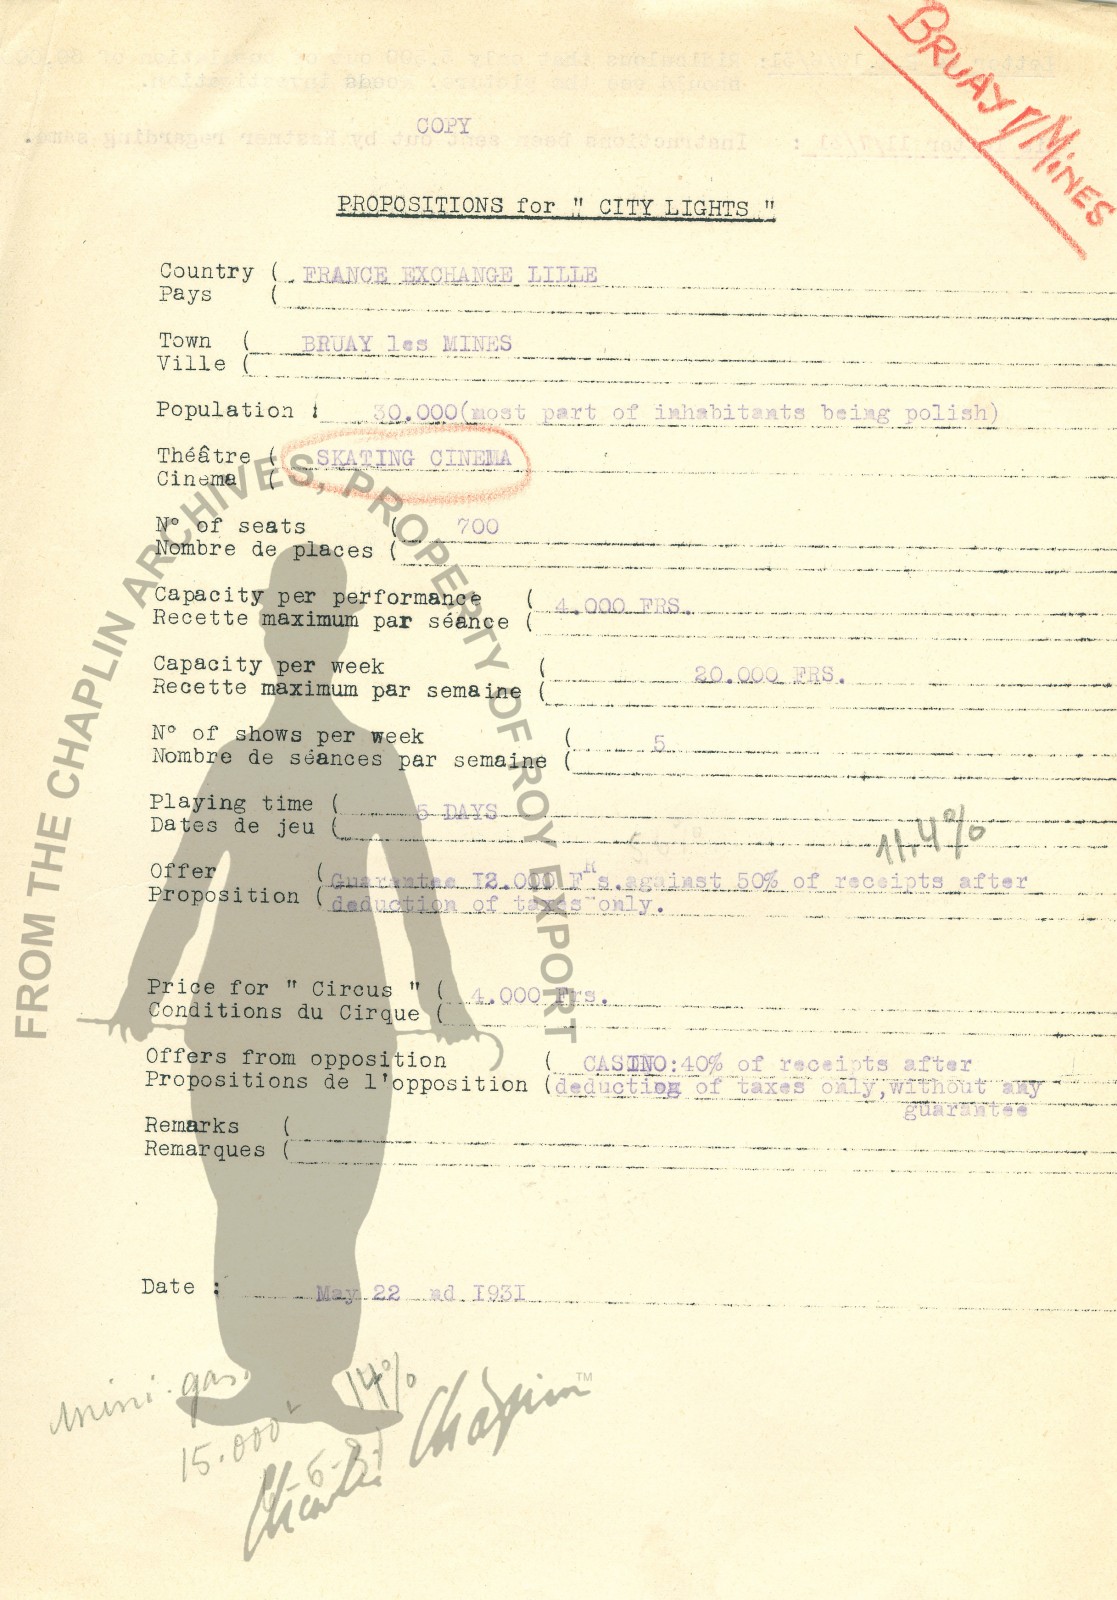 BRUAY/MINES
COPY
PROPOSITIONS for " CITY LIGHTS "
Country ( FRANCE EXCHANGE LILLE
Pays (
Town ( BRUAY les MINES
Ville (
Population : 30.000(most part of inhabitants being polish)
Théâtre ( SKATING CINEMA
Cinema (
N° of seats ( 700
Nombre de places (
Capacity per performance ( 4.000 FRS.
Recette maximum par séance (
Capacity per week ( 20.000 FRS.
Recette maximum par semaine (
N° of shows per week ( 5
Nombre de séances par semaine (
Playing time ( 5 DAYS
Dates de jeu (
11.4%
Offer ( Guarantee I2.000 FRs.against 50% of receipts after
Proposition ( deduction of taxes only.
Price for " Circus " ( 4.000 Frs.
Conditions du Cirque (
Offers from opposition ( CASINO:40% of receipts after
Propositions de l'opposition ( deduction of taxes only,without any
guarantee
Remarks (
Remarques (
Date : May 22 nd I93I
mini. gar. 14%
15.000
Charlie Chaplin TM
FROM THE CHAPLIN ARCHIVES, PROPERTY OF ROY EXPORT